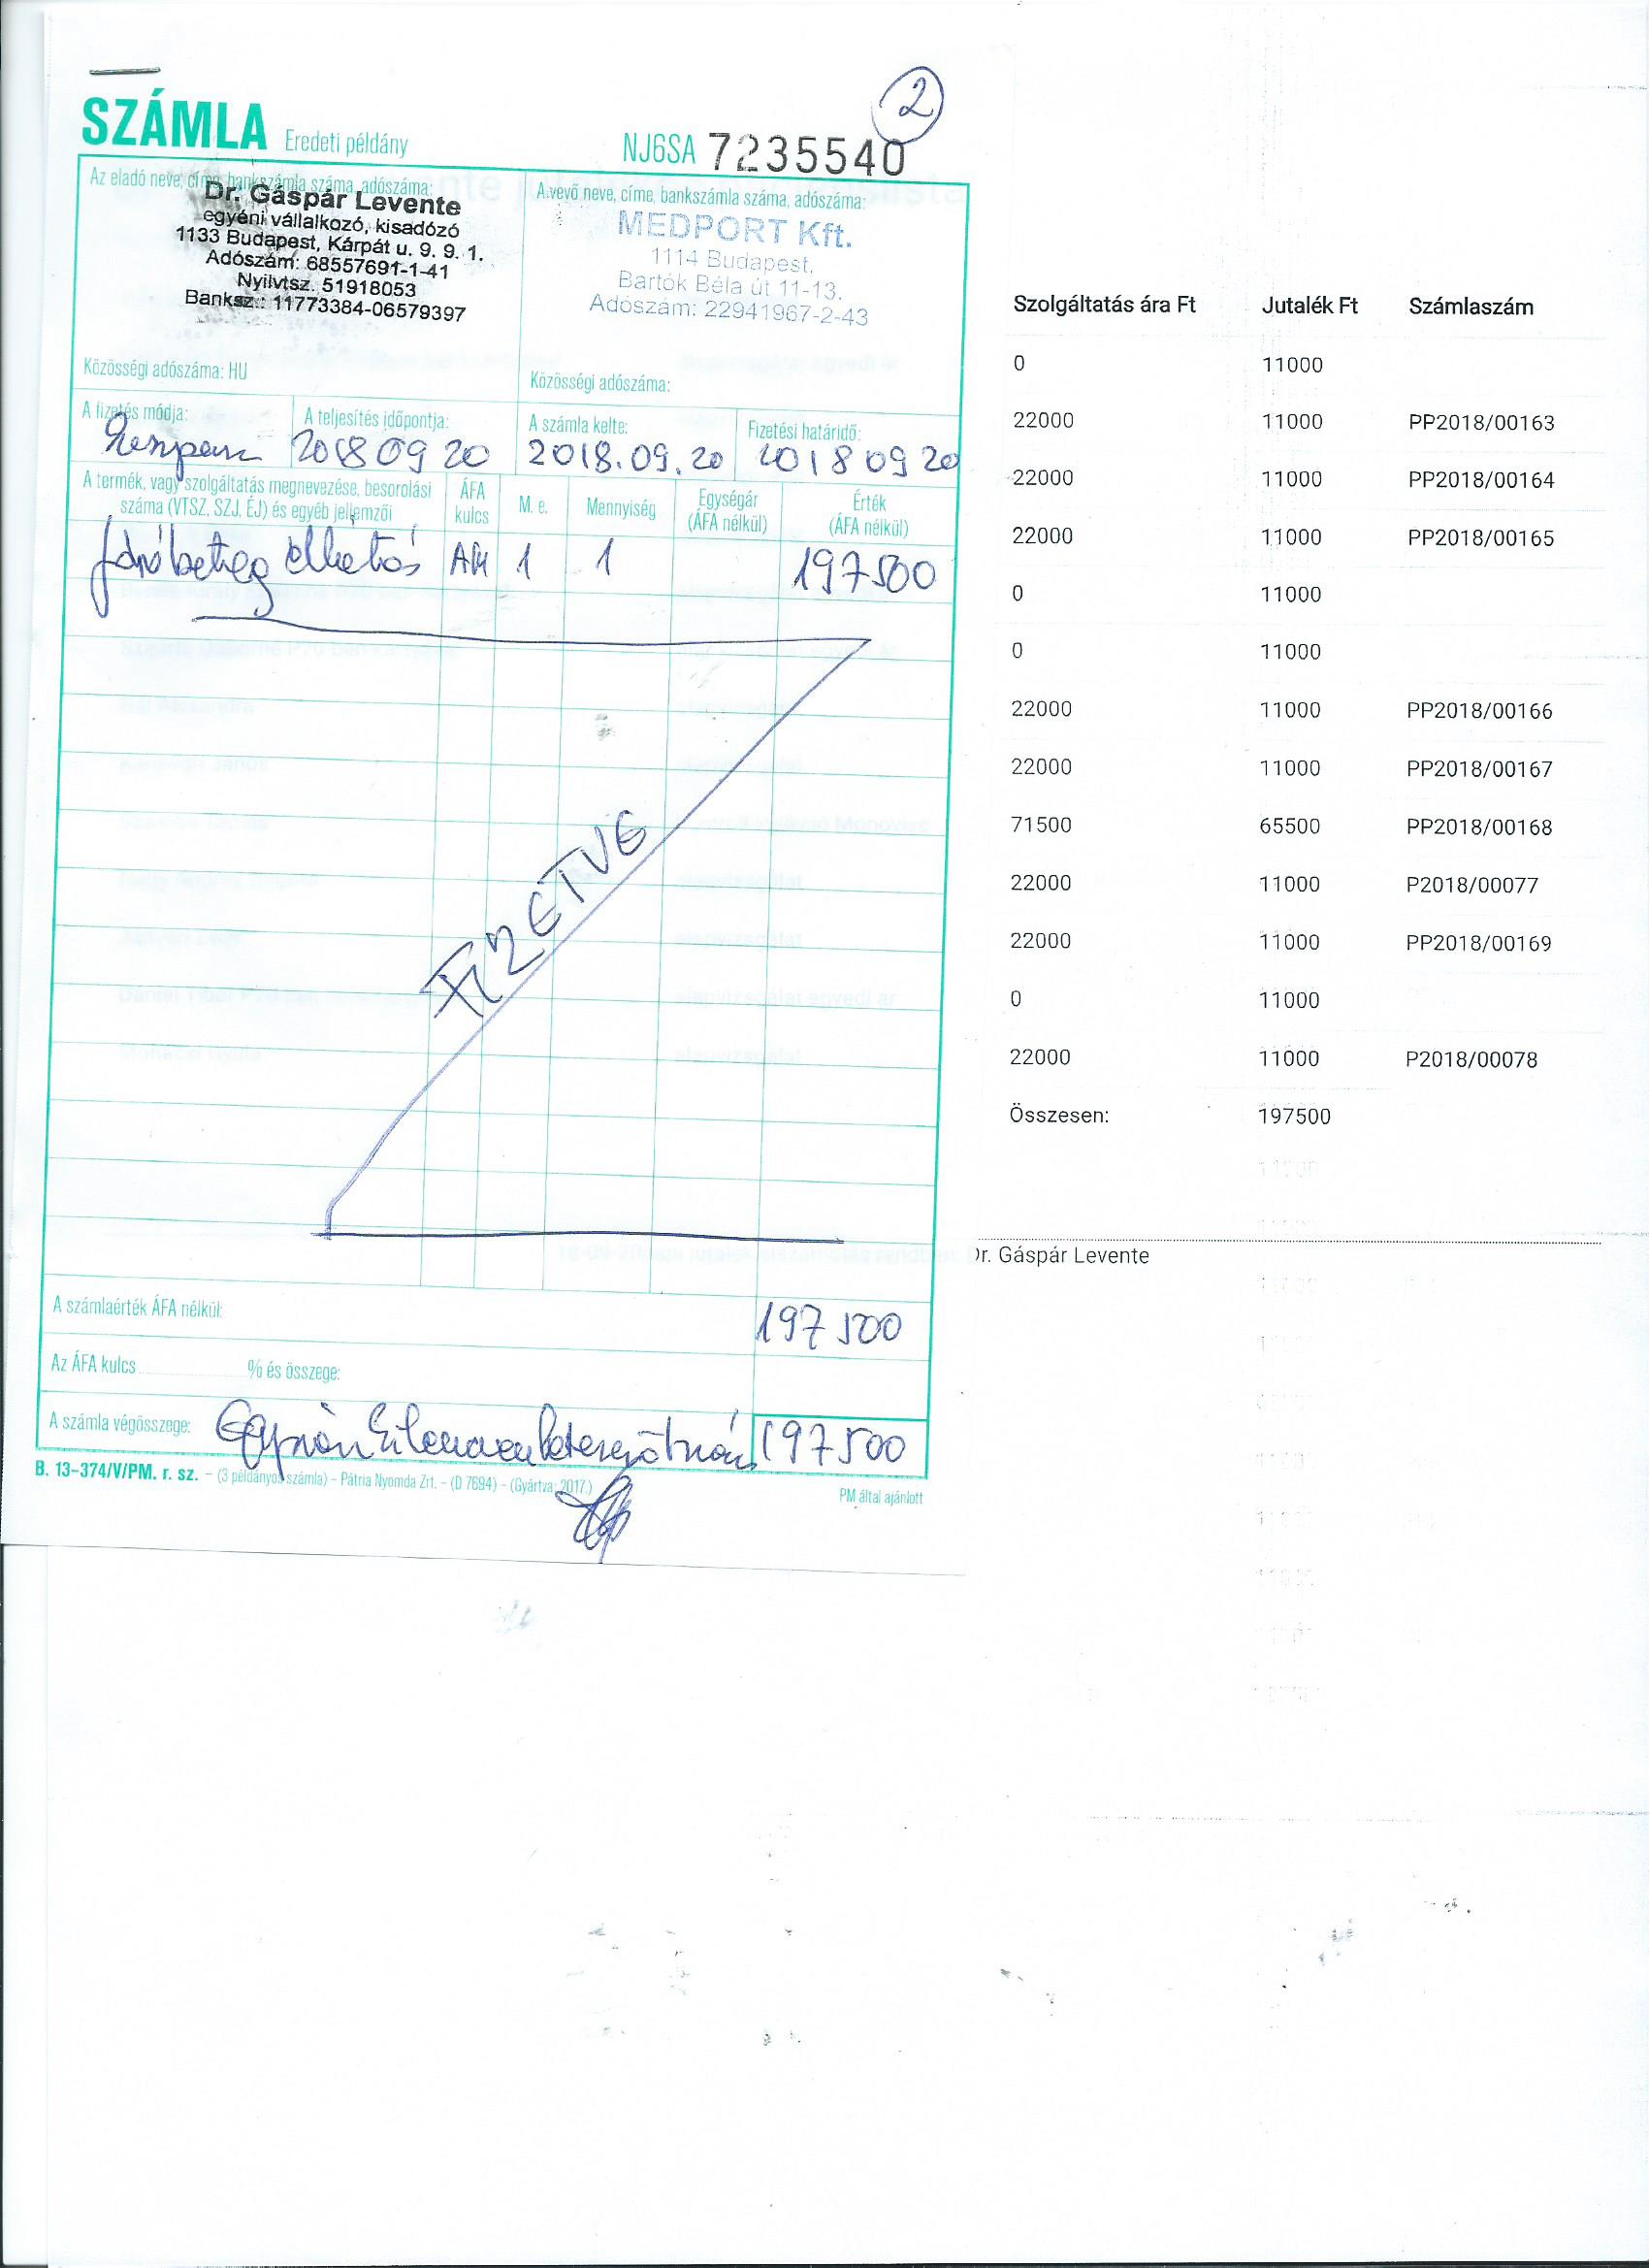 2
SZÁMLA Eredeti példány NJ6SA 7235540
Az eladó neve, címe, bankszámla száma, adószáma:
Dr. Gáspár Levente
egyéni vállalkozó, kisadózó
1133 Budapest, Kárpát u. 9. 9. 1.
Adószám: 68557691-1-41
Nyilvtsz. 51918053
Banksz.: 11773384-06579397
Közösségi adószáma: HU
A vevő neve, címe, bankszámla száma, adószáma:
MEDPORT Kft.
1114 Budapest,
Bartók Béla út 11-13.
Adószám: 22941967-2-43
Közösségi adószáma:
A fizetés módja: A teljesítés időpontja: A számla kelte: Fizetési határidő:
2018 09 20 2018.09.20 2018 09 20
A termék, vagy szolgáltatás megnevezése, besorolási száma (VTSZ, SZJ, ÉJ) és egyéb jellemzői ÁFA kulcs M. e. Mennyiség Egységár (ÁFA nélkül) Érték (ÁFA nélkül)
járóbeteg ellátás AM 1 1 197500
FIZETVE
A számlaérték ÁFA nélkül: 197 500
Az ÁFA kulcs % és összege:
A számla végösszege: 197500
B. 13–374/V/PM. r. sz. – (3 példányos számla) – Pátria Nyomda Zrt. – (D 7694) – (Gyártva: 2017.)
PM által ajánlott
Szolgáltatás ára Ft Jutalék Ft Számlaszám
0 11000
22000 11000 PP2018/00163
22000 11000 PP2018/00164
22000 11000 PP2018/00165
0 11000
0 11000
22000 11000 PP2018/00166
22000 11000 PP2018/00167
71500 65500 PP2018/00168
22000 11000 P2018/00077
22000 11000 PP2018/00169
0 11000
22000 11000 P2018/00078
Összesen: 197500
Dr. Gáspár Levente